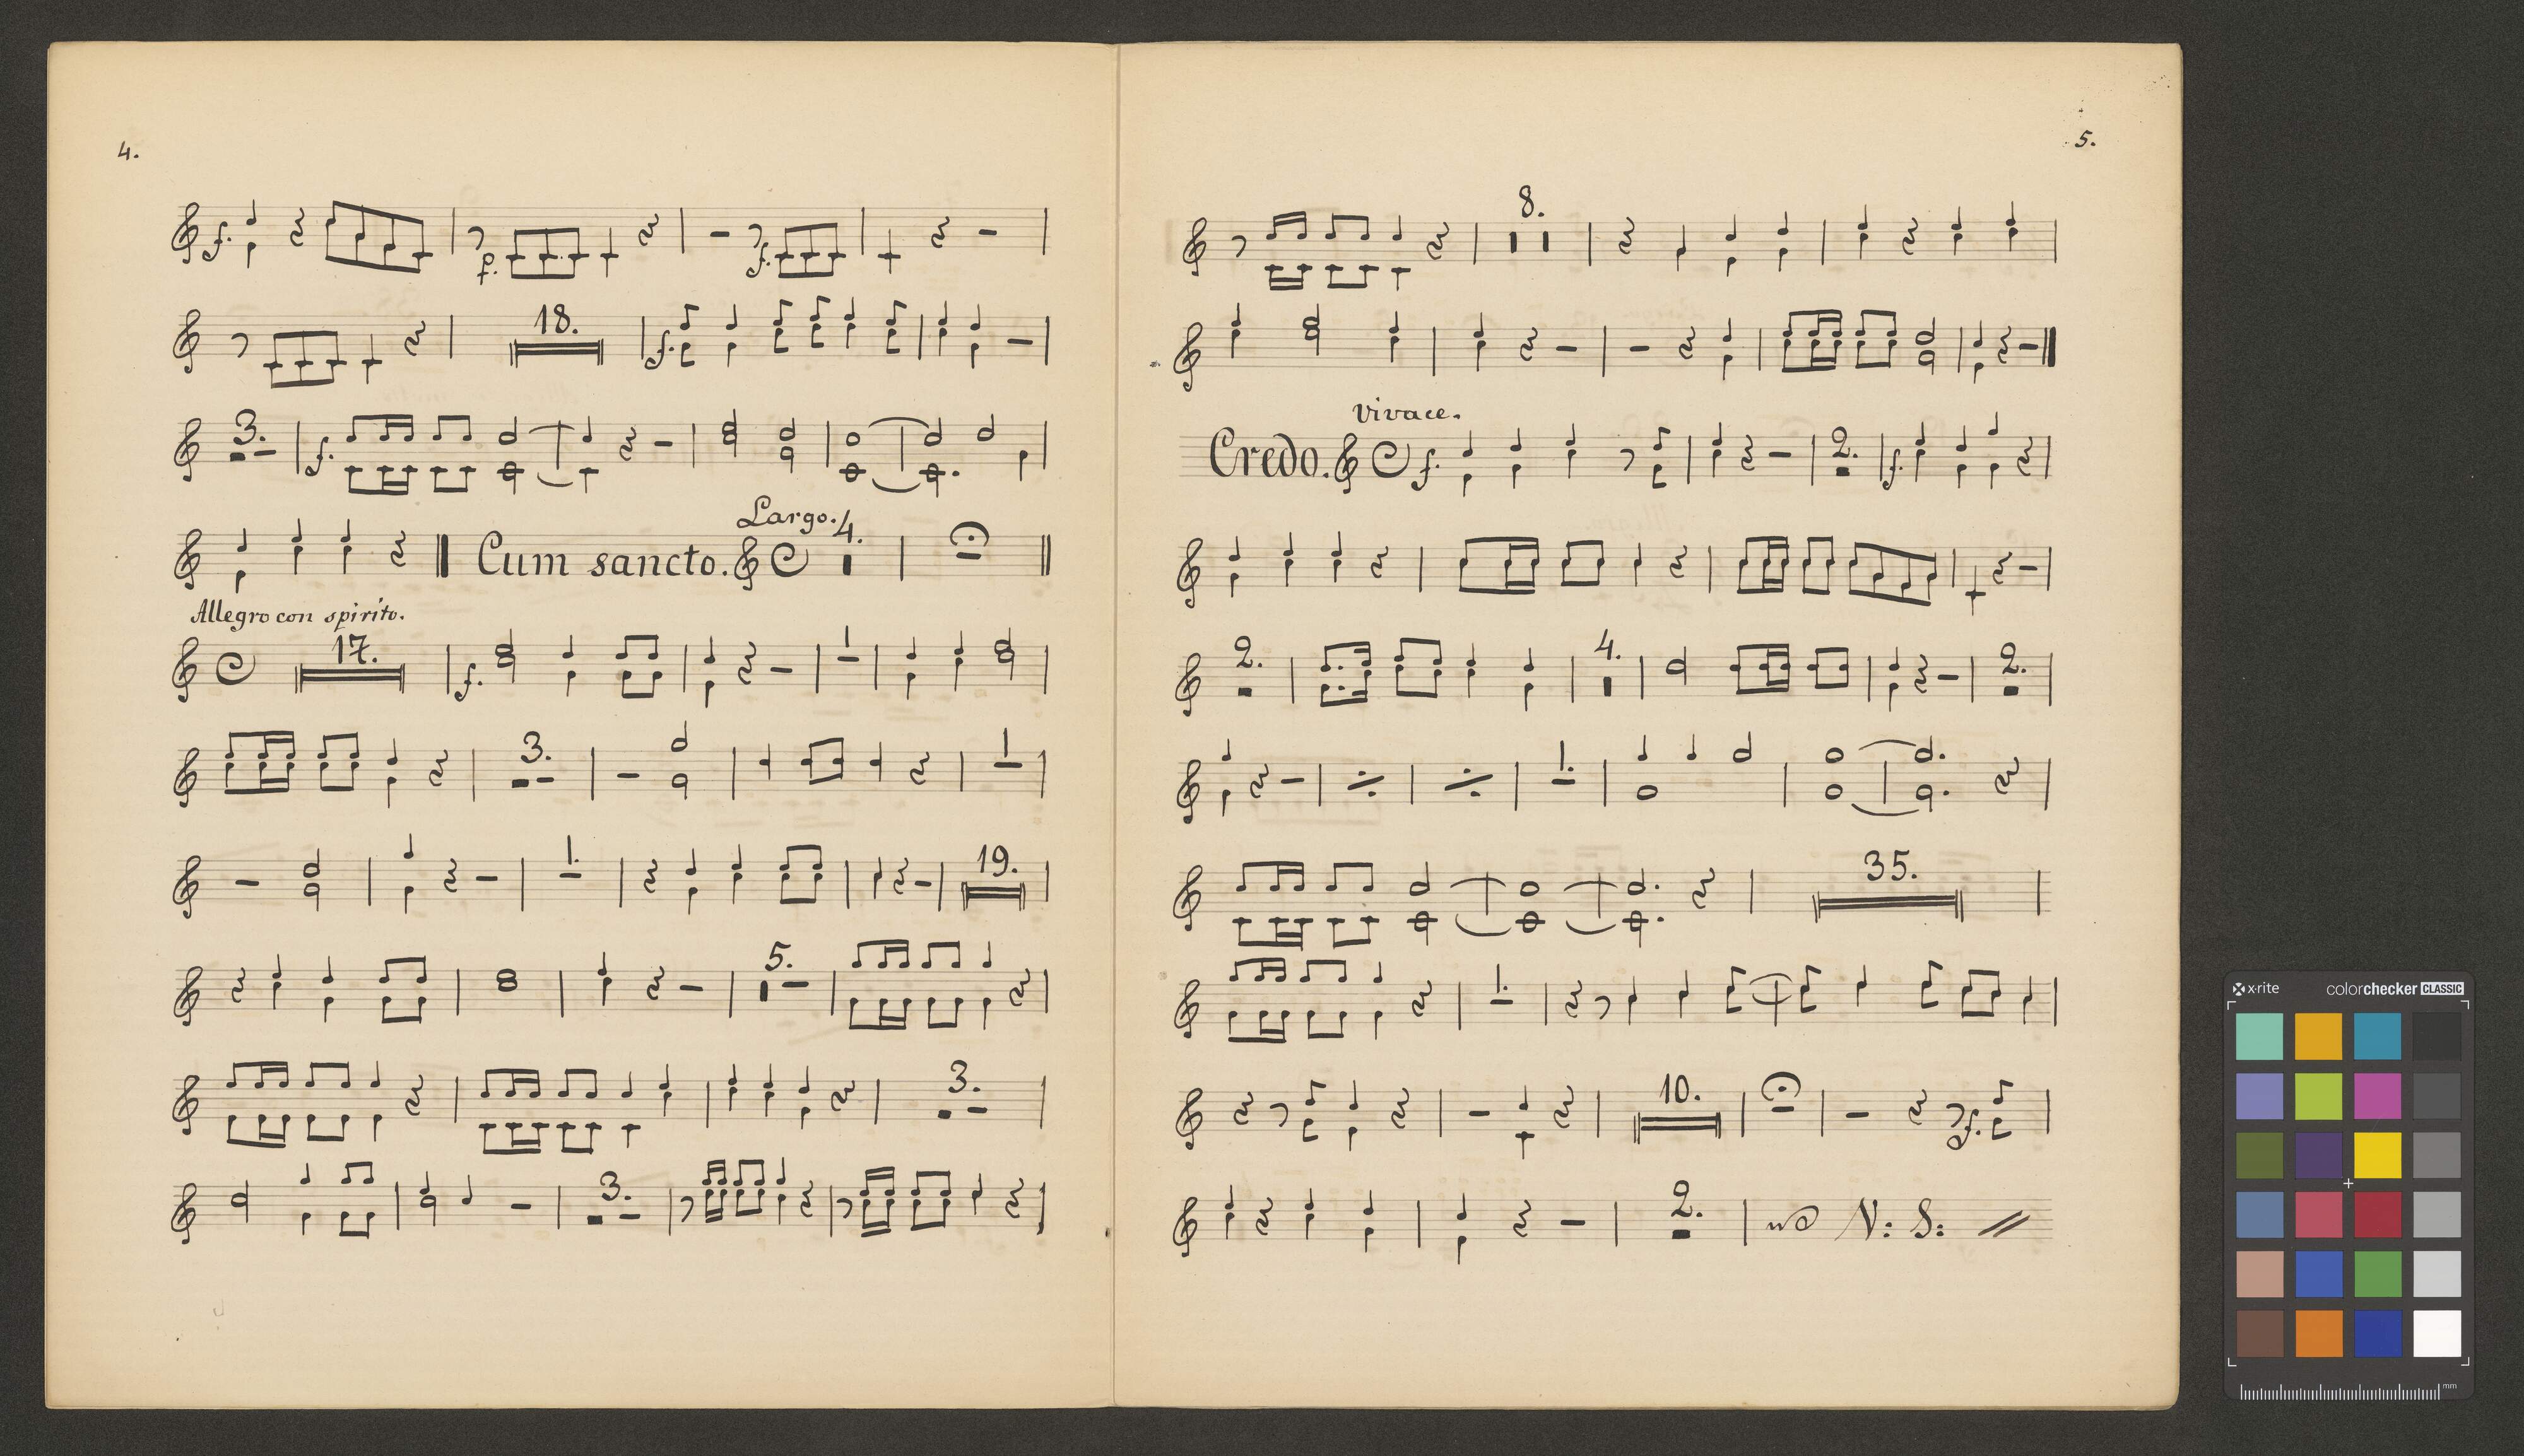 4.
f. p. f.
18. f.
3. f.
Cum sancto. Largo. 4.
Allegro con spirito.
17. f. 1
3. 1
1. 19.
5.
3.
3.
5.
8.
vivace.
Credo. f. 2. f.
2. 4. 2.
1.
35.
1.
10. f.
2. N: S:
x-rite colorchecker CLASSIC
mm